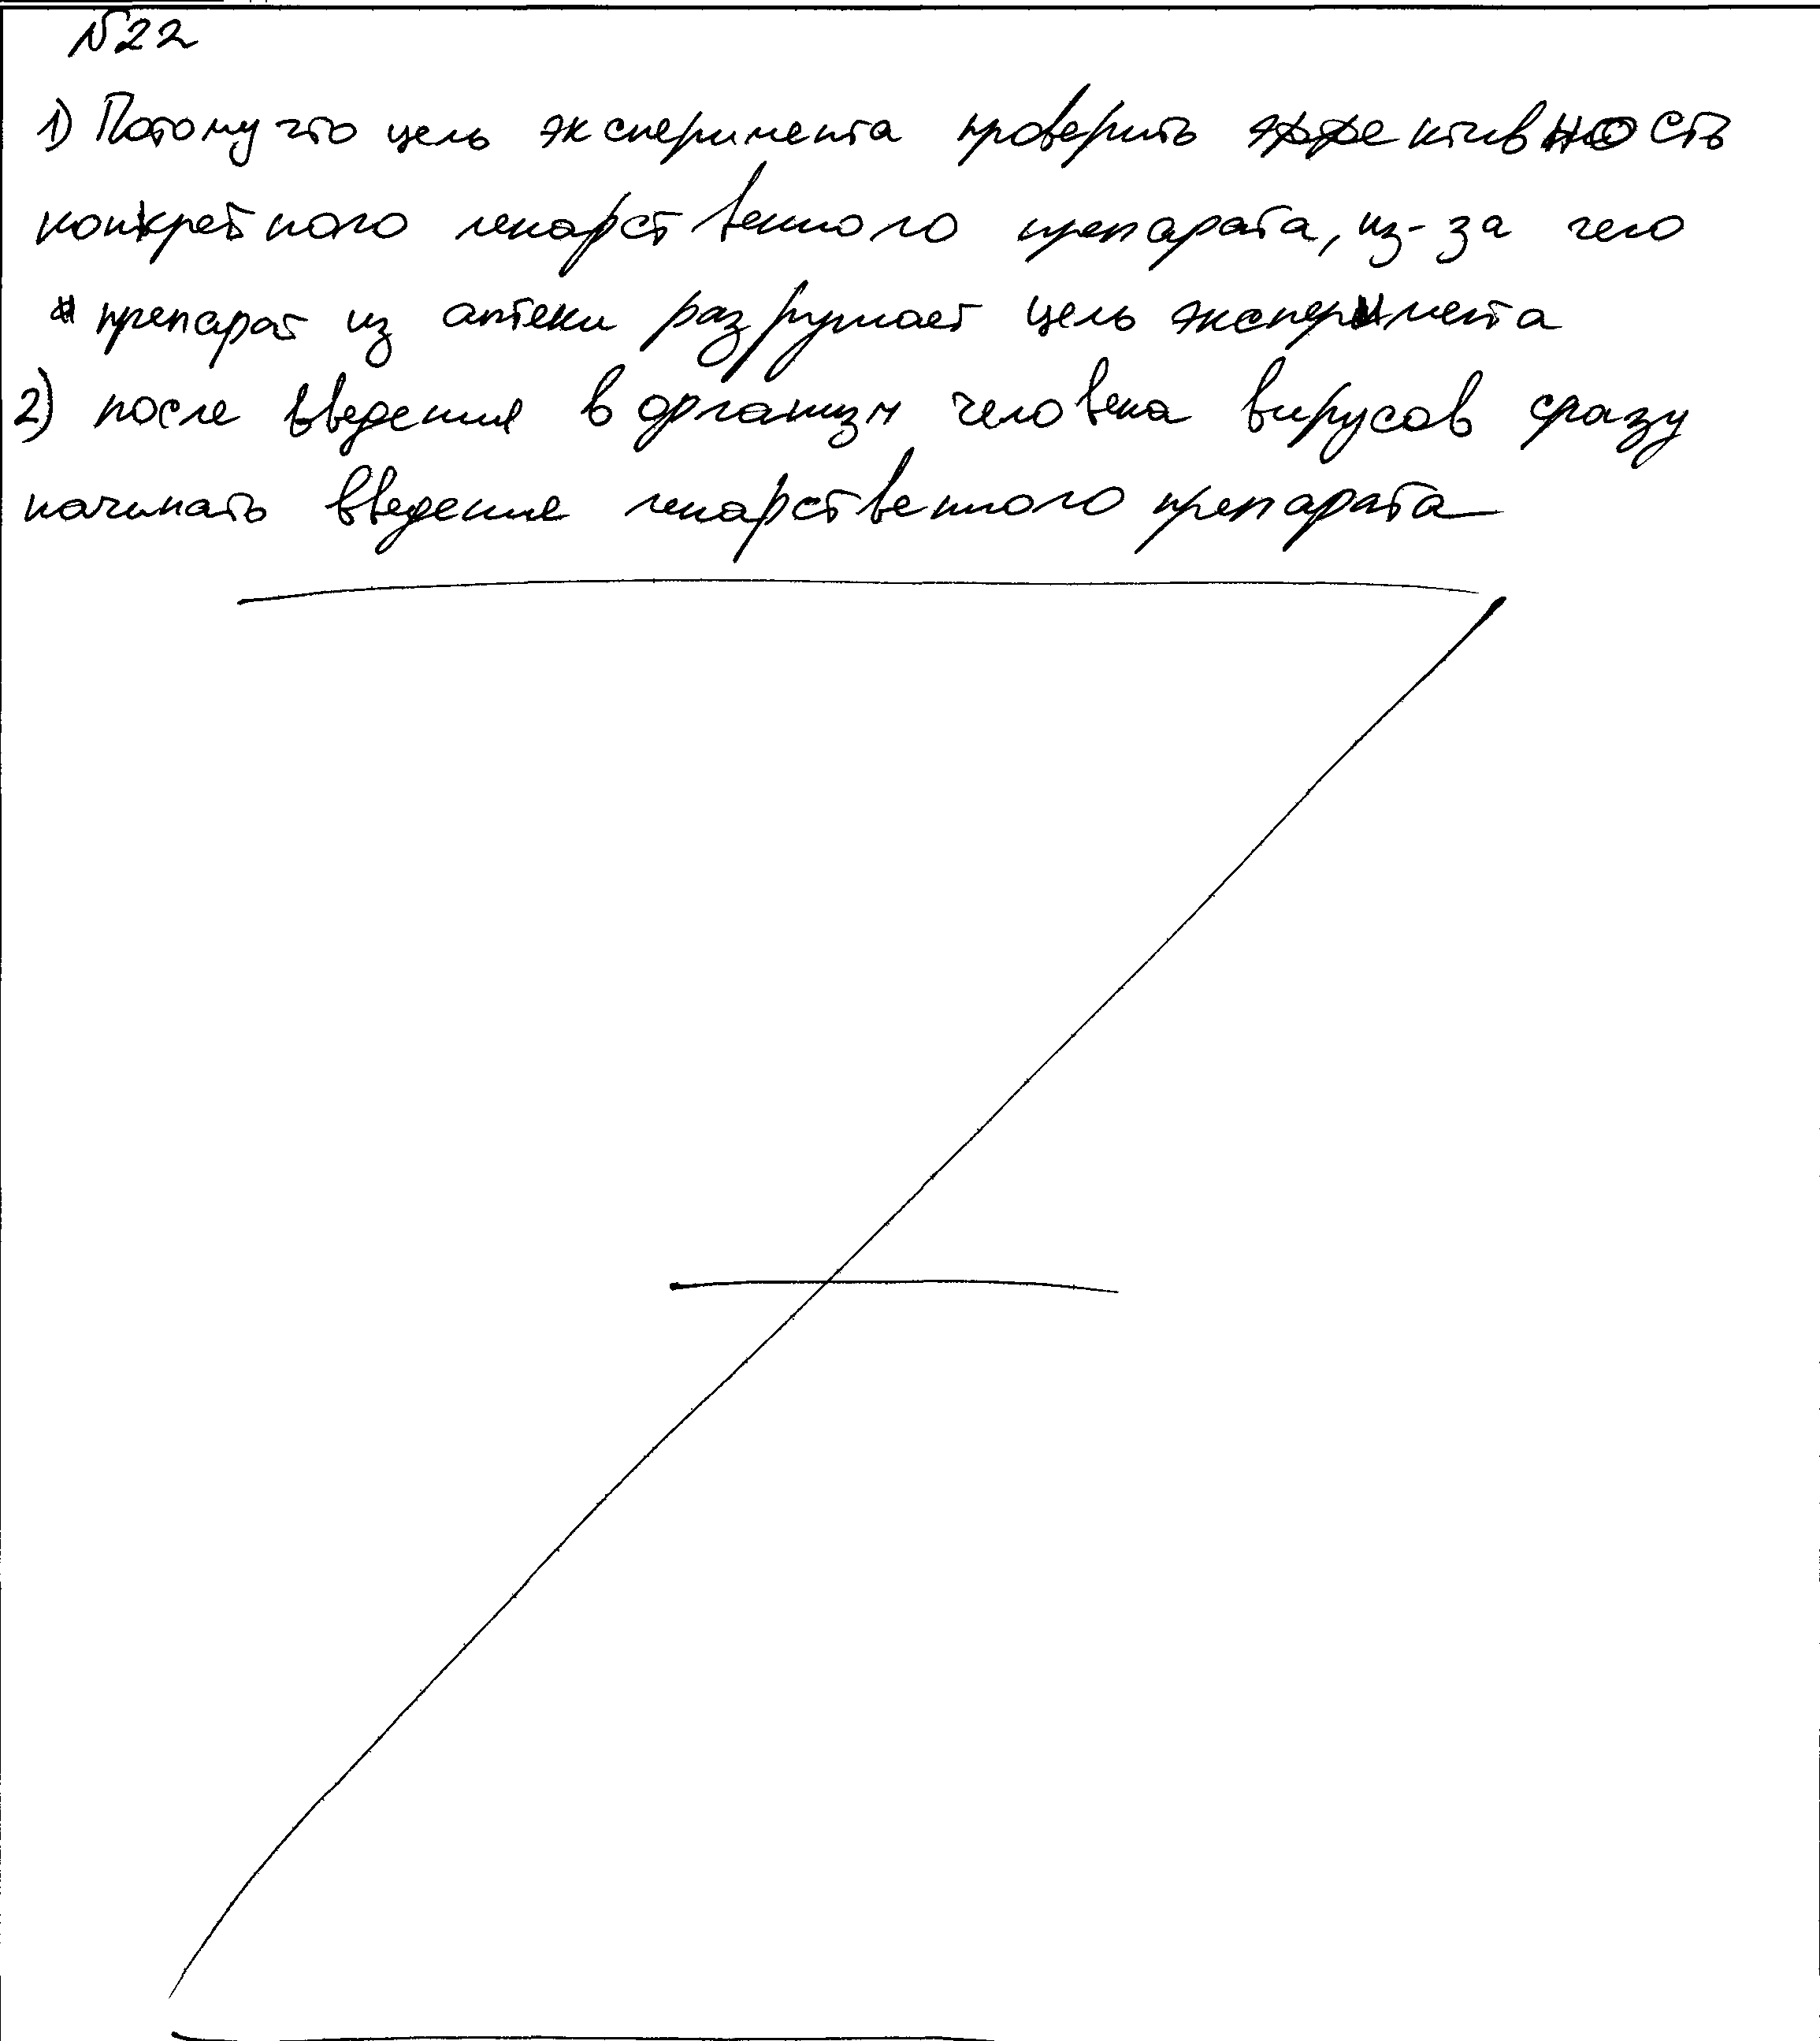 №22
1) Потому что цель эксперимента проверить эффективность
конкретного лекарственного препарата, из-за чего
препарат из аптеки разрушает цель эксперимента
2) после введения в организм человека вирусов сразу
начинать введение лекарственного препарата